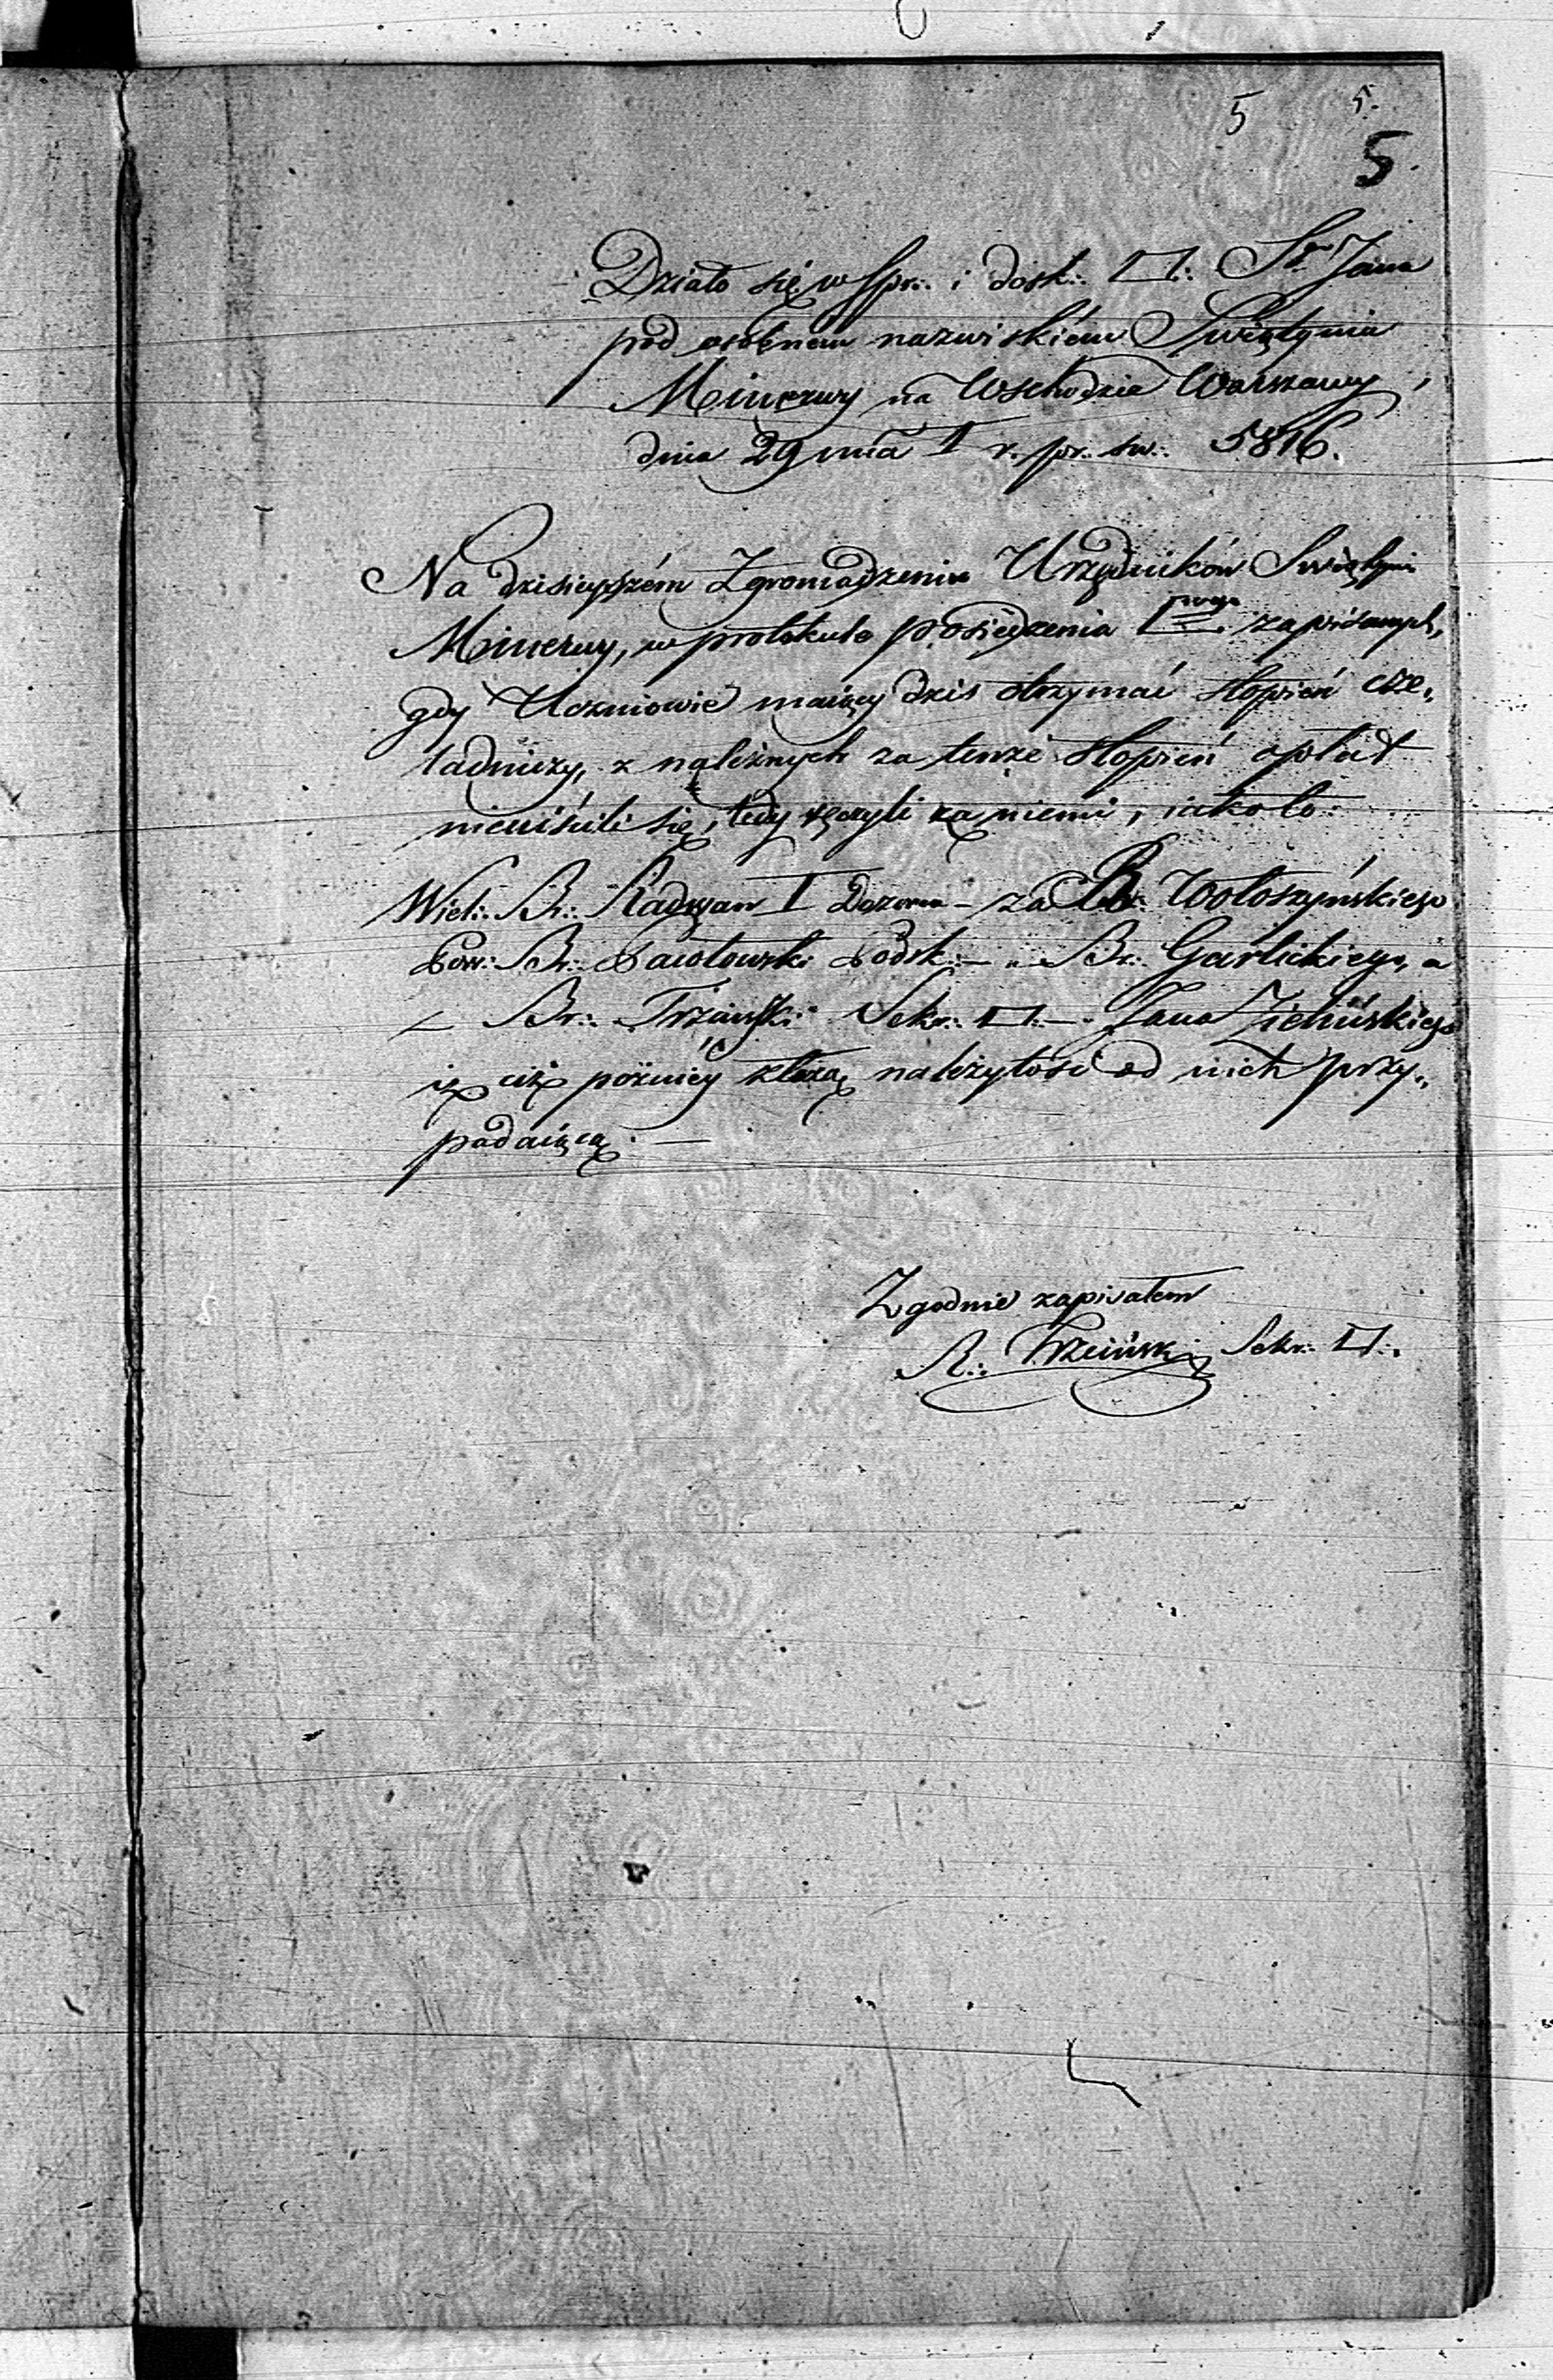 5 5.
5.
Działo się w spr:. i dosk:. □:. Sgo Jana
pod osobnem nazwiskiém Swiątynia
Minerwy na Wschodzie Warszawy,
dnia 29 mca I r. pr. sw:. 5816.
Na dzisieyszém Zgromadzeniu Urzędników Swiątyni
Minerwy, w protokule posiedzenia Iwszego zapisanych,
gdy Uczniowie maiący dziś otrzymać stopień cze„
ladniczy, z należnych za tenże stopień opłat
nieuiścili się, tedy ręczyli za niemi, iako to:
Wiel:. Br:. Radwan I Dozorca – za Br:. Wołoszyńskiego
Br:. Pawłowski Podsk:. – „ Br:. Garlickiego, a
– Br:. Sekr:. □:. – „ Jana Zielińskiego
iż ciż późniéy złożą należytość od nich przy„
padaiącą. —
Zgodnie zapisałem
Sekr:. □:.